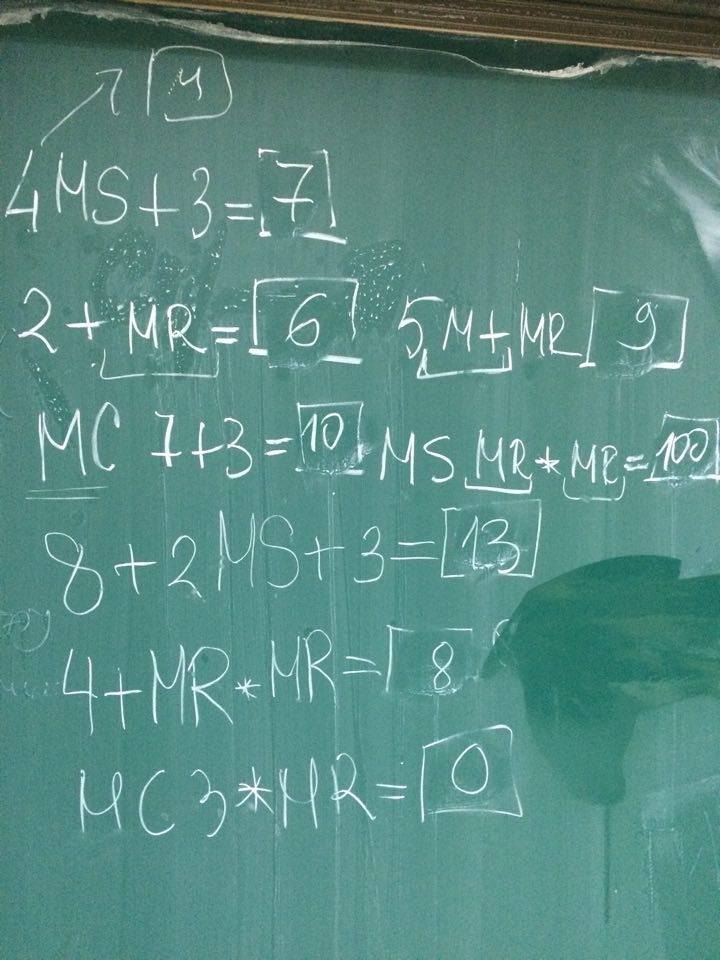 4
4MS+3=7
2+MR=6 5M+MR 9
MC 7+3=10 MS MR*MR=100
8+2MS+3=13
4+MR*MR=8
MC3*MR=0